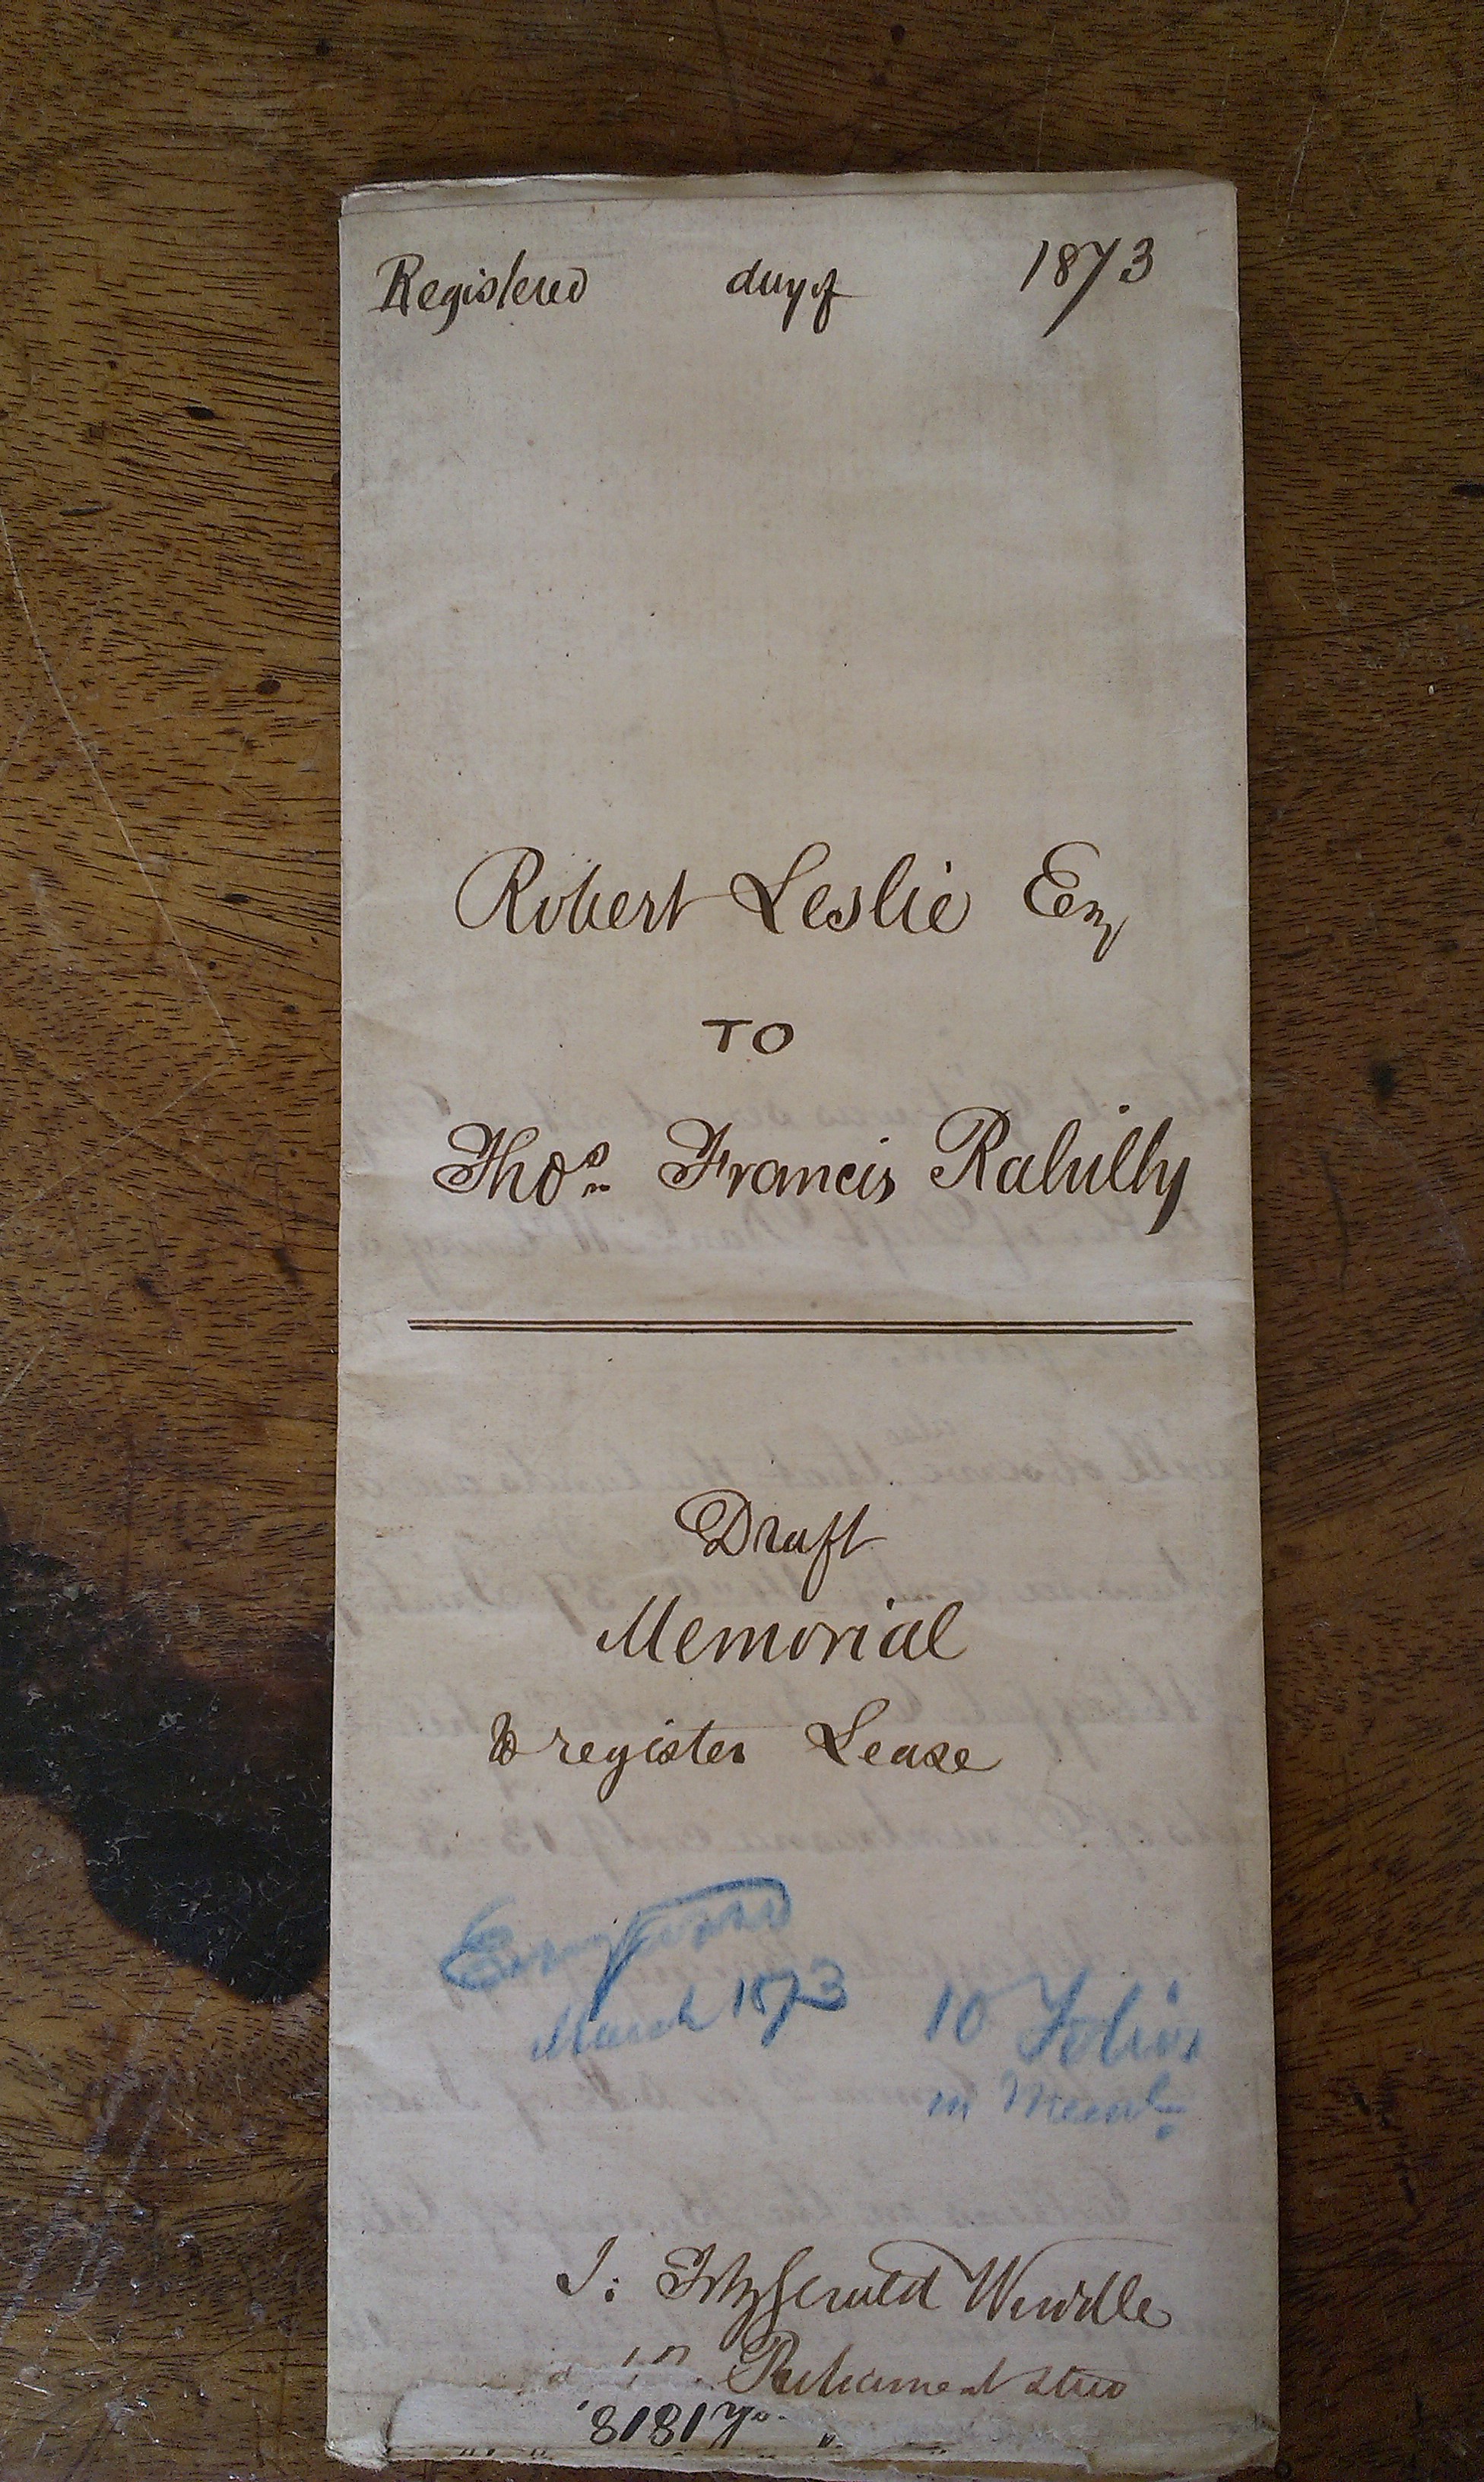 Registered day of 1873
Robert Leslie Esq
TO
Thos. Francis Rahilly
Draft
Memorial
to register Lease
Engrossed
March 1873
10 Folios
in Meml.
J: Fitzgerald Wendle
Parliament Street